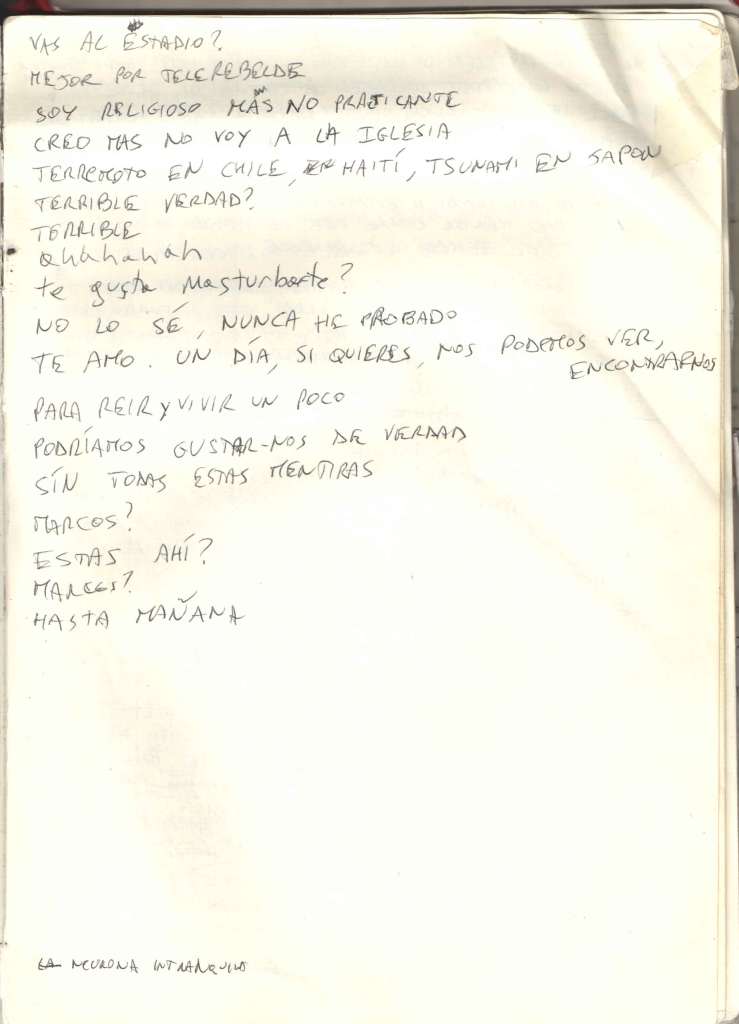 VAS AL ESTADIO?
MEJOR POR TELEREBELDE
SOY RELIGIOSO MÁS NO PRATICANTE
CREO MAS NO VOY A LA IGLESIA
TERREMOTO EN CHILE, HAITÍ, TSUNAMI EN JAPON
TERRIBLE VERDAD?
TERRIBLE
ahahahah
te gusta masturbarte?
NO LO SÉ, NUNCA HE PROBADO
TE AMO. UN DÍA, SI QUIERES, NOS PODEMOS VER,
ENCONTRARNOS
PARA REIR Y VIVIR UN POCO
PODRÍAMOS GUSTAR-NOS DE VERDAD
SÍN TODAS ESTAS MENTIRAS
MARCOS?
ESTAS AHÍ?
MARCOS?
HASTA MAÑANA
LA NEURONA INTRANQUILA